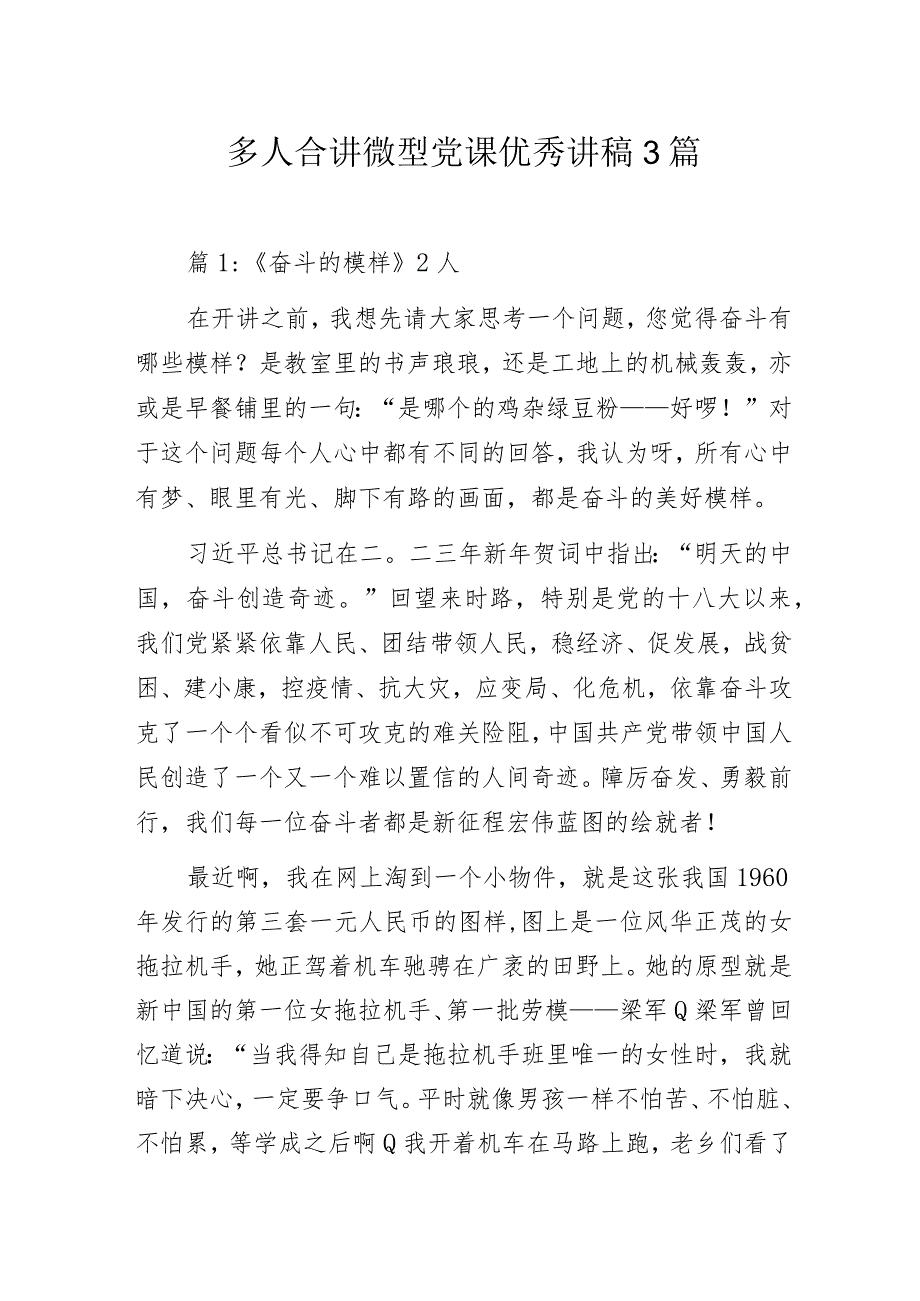 多人合讲微型党课优秀讲稿3篇
篇1:《奋斗的模样》2人
在开讲之前，我想先请大家思考一个问题，您觉得奋斗有
哪些模样？是教室里的书声琅琅，还是工地上的机械轰轰，亦
或是早餐铺里的一句：“是哪个的鸡杂绿豆粉——好啰！”对
于这个问题每个人心中都有不同的回答，我认为呀，所有心中
有梦、眼里有光、脚下有路的画面，都是奋斗的美好模样。
习近平总书记在二。二三年新年贺词中指出：“明天的中
国，奋斗创造奇迹。”回望来时路，特别是党的十八大以来，
我们党紧紧依靠人民、团结带领人民，稳经济、促发展，战贫
困、建小康，控疫情、抗大灾，应变局、化危机，依靠奋斗攻
克了一个个看似不可攻克的难关险阻，中国共产党带领中国人
民创造了一个又一个难以置信的人间奇迹。障厉奋发、勇毅前
行，我们每一位奋斗者都是新征程宏伟蓝图的绘就者！
最近啊，我在网上淘到一个小物件，就是这张我国1960
年发行的第三套一元人民币的图样,图上是一位风华正茂的女
拖拉机手，她正驾着机车驰骋在广袤的田野上。她的原型就是
新中国的第一位女拖拉机手、第一批劳模——梁军Q梁军曾回
忆道说：“当我得知自己是拖拉机手班里唯一的女性时，我就
暗下决心，一定要争口气。平时就像男孩一样不怕苦、不怕脏、
不怕累，等学成之后啊Q我开着机车在马路上跑，老乡们看了